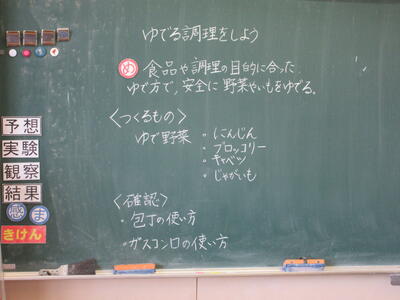 ゆでる調理をしよう
め 食品や調理の目的に合った
ゆで方で、安全に野菜やいもをゆでる。
＜つくるもの＞
ゆで野菜 ・にんじん
・ブロッコリー
・キャベツ
・じゃがいも
＜確認＞
・包丁の使い方
・ガスコンロの使い方
予想
実験
観察
結果
感 ま
きけん